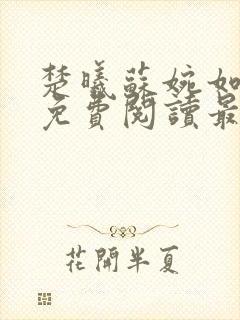 楚曦蘇婉如
免費閱讀最
花開半夏